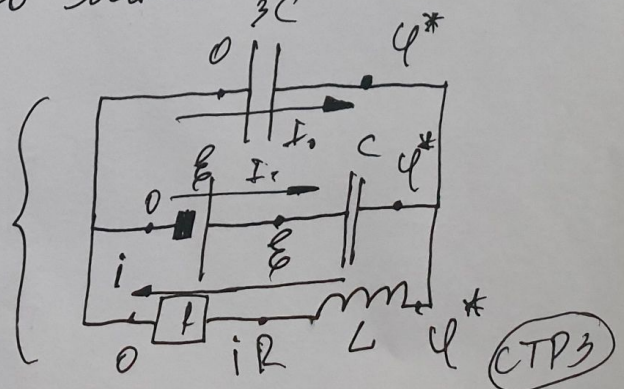 3C
0 φ*
I₀
ℰ I₁ C φ*
0
ℰ
i
R
0 iR L φ*
СТР 3